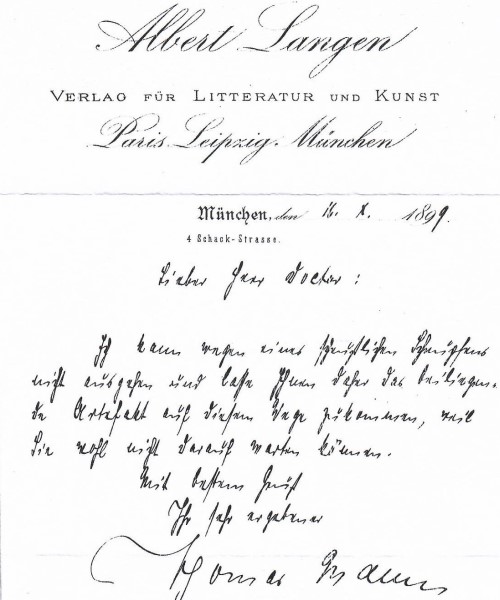 Albert Langen
VERLAG FÜR LITTERATUR UND KUNST
Paris. Leipzig. München
München, den 16. X. 1899.
4 Schack-Strasse.
Lieber Herr Doctor:
Ich kann wegen eines scheußlichen Schnupfens
nicht ausgehen und lasse Ihnen daher das beiliegen-
de Artefakt auf diesem Wege zukommen, weil
Sie wohl nicht darauf warten können.
Mit bestem Gruß
Ihr sehr ergebener
Thomas Mann